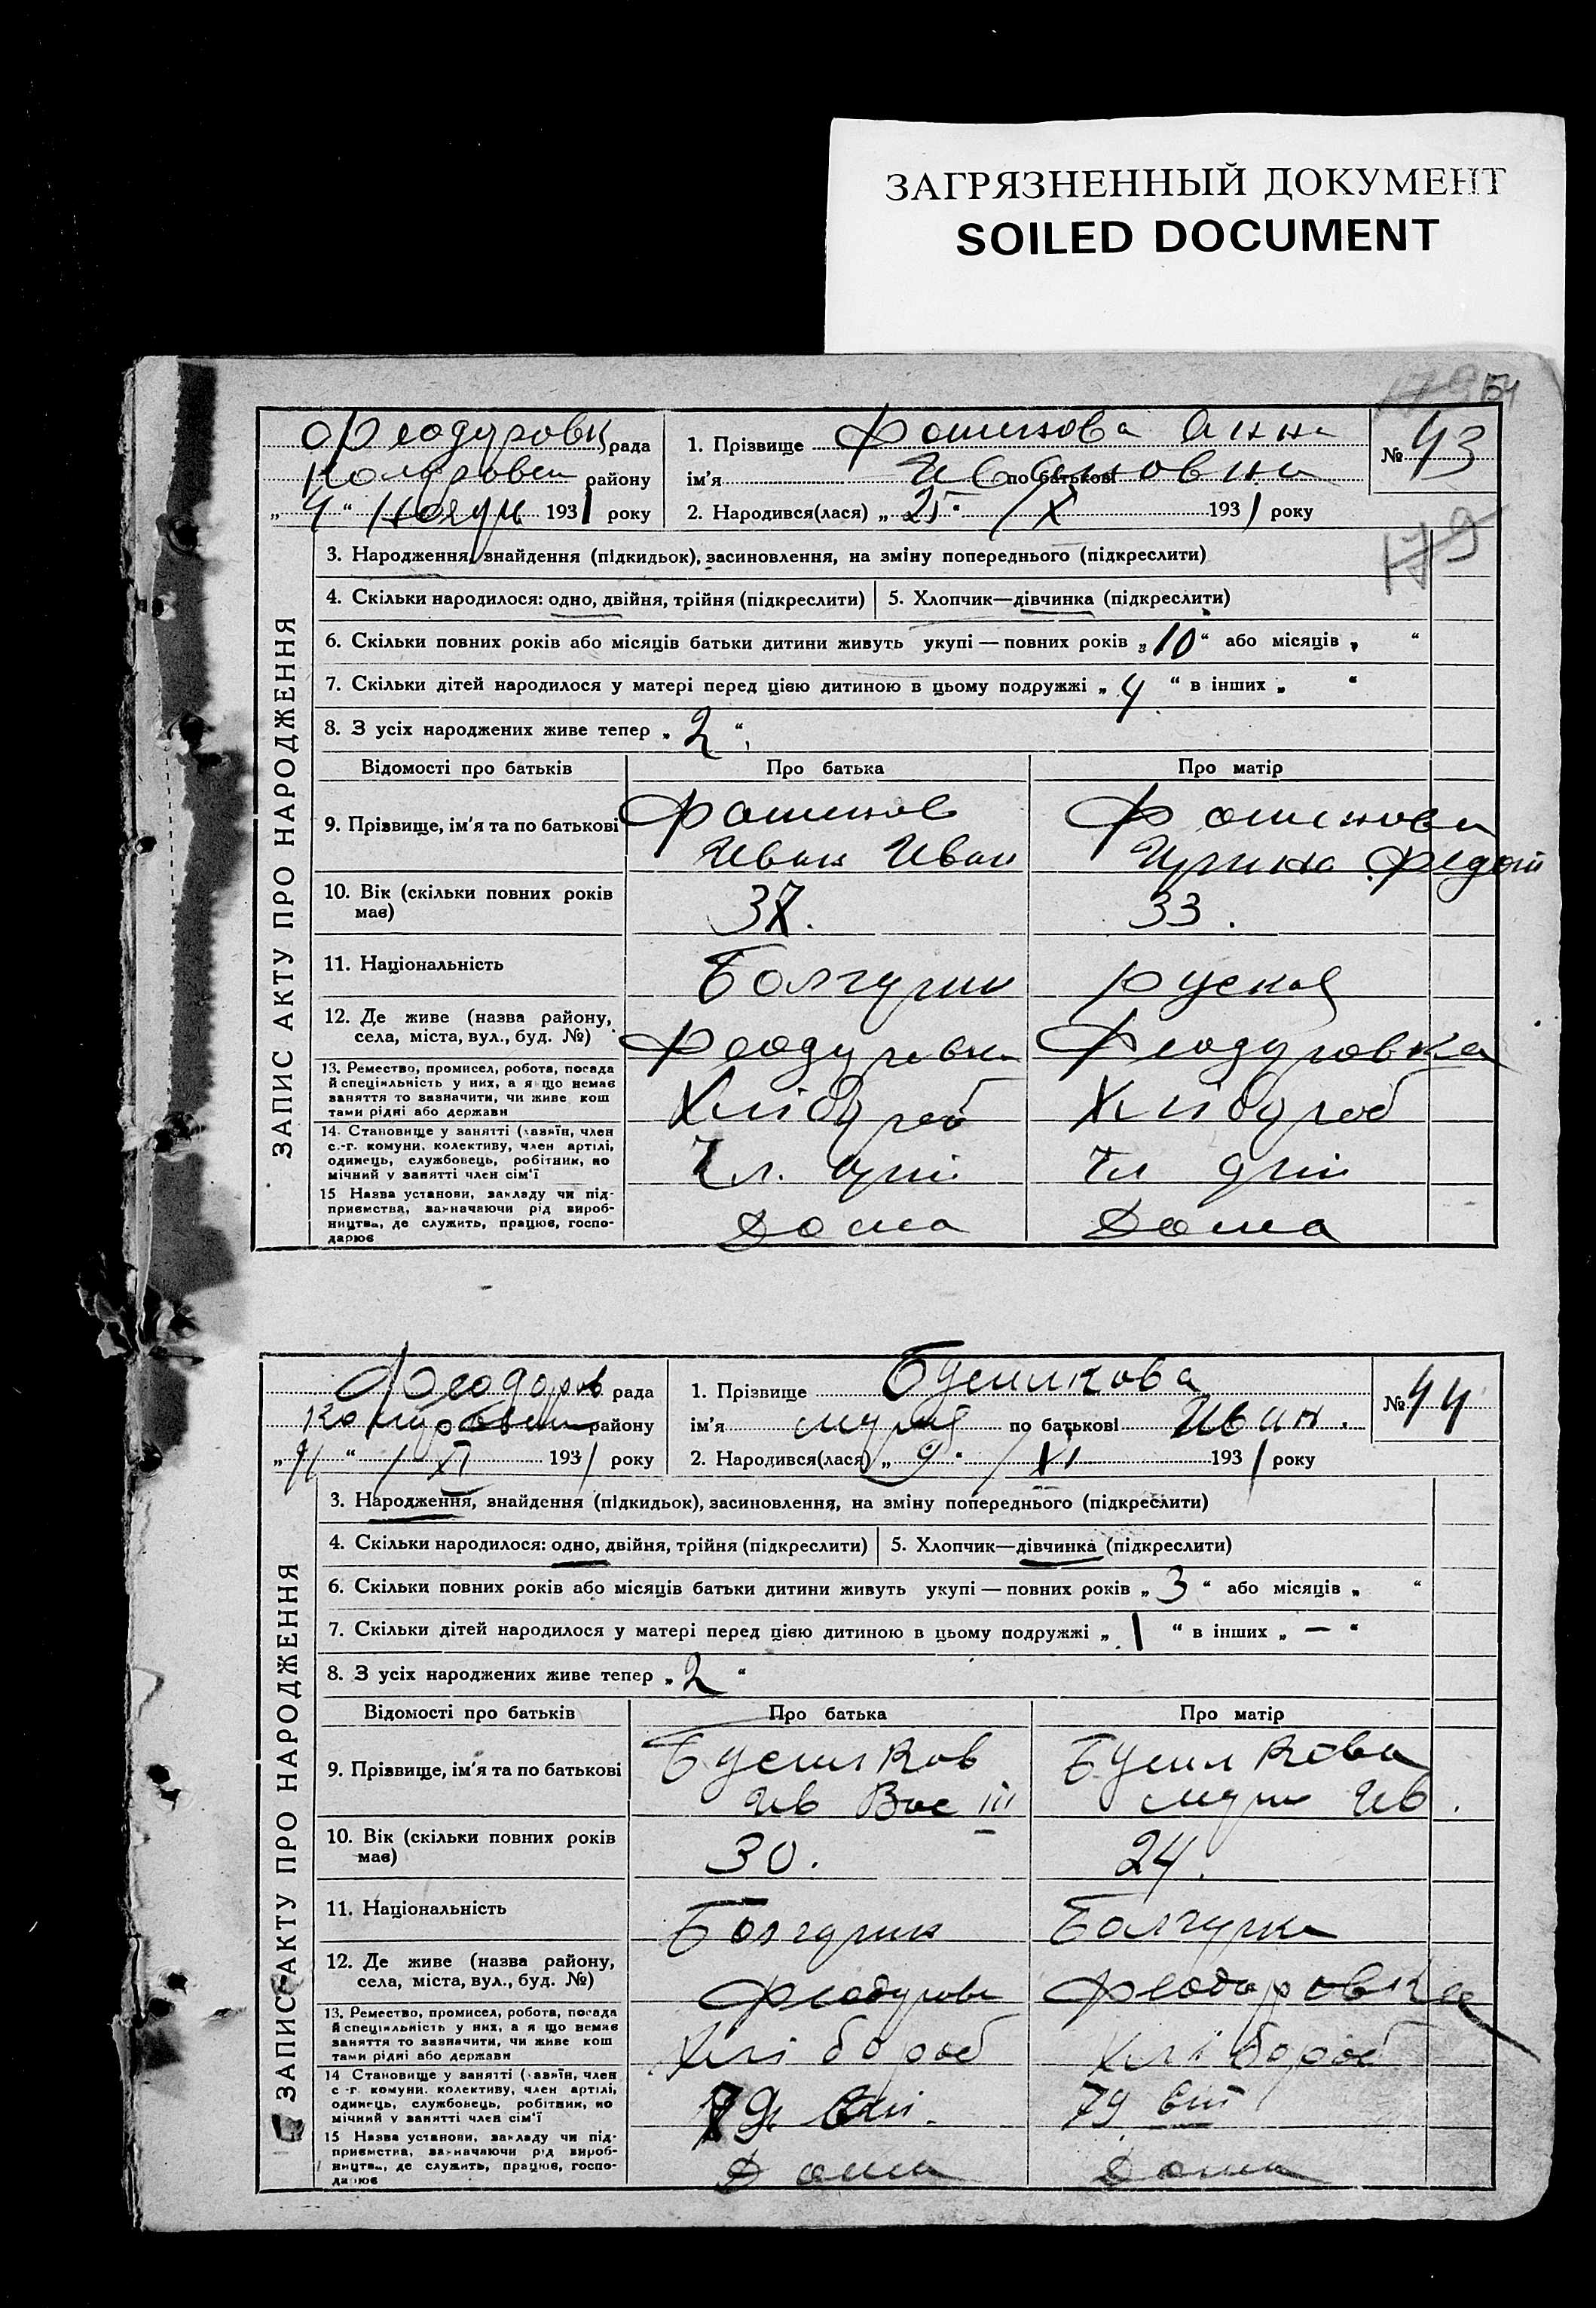 ЗАГРЯЗНЕННЫЙ ДОКУМЕНТ
SOILED DOCUMENT
179 54
ЗАПИС АКТУ ПРО НАРОДЖЕННЯ
рада
району
„ 4 “ 1931 року
1. Прізвище Фоминова Анна
ім'я по батькові Ивановна
2. Народився(лася) „ 25 “ / X 1931 року
№ 43
179
3. Народження, знайдення (підкидьок), засиновлення, на зміну попереднього (підкреслити)
4. Скільки народилося: одно, двійня, трійня (підкреслити) 5. Хлопчик—дівчинка (підкреслити)
6. Скільки повних років або місяців батьки дитини живуть укупі — повних років „ 10 “ або місяців „ “
7. Скільки дітей народилося у матері перед цією дитиною в цьому подружжі „ 4 “ в інших „ “
8. З усіх народжених живе тепер „ 2 “
Відомості про батьків Про батька Про матір
9. Прізвище, ім'я та по батькові
Фоминов Фоминова
Иван Иван
10. Вік (скільки повних років
має) 37. 33.
11. Національність Болгарин руская
12. Де живе (назва району,
села, міста, вул., буд. №) Феодоровка Феодоровка
13. Ремество, промисел, робота, посада
й спеціяльність у них, а якщо немає
заняття то зазначити, чи живе кош
тами рідні або держави
Хлібороб Хлібороб
14. Становище у занятті (хазяїн, член
с.-г. комуни, колективу, член артілі,
одинець, службовець, робітник, по
мічний у занятті член сім'ї
Чл. арт. Чл арт
15 Назва установи, закладу чи під-
приємства, зазначаючи рід вироб-
ництва, де служить, працює, госпо-
дарює
Дома Дома
ЗАПИС АКТУ ПРО НАРОДЖЕННЯ
Феодоров рада
району
/ XI 1931 року
1. Прізвище
ім'я Мария по батькові Иван.
2. Народився(лася) „ 9 “ / XI 1931 року
№ 44
3. Народження, знайдення (підкидьок), засиновлення, на зміну попереднього (підкреслити)
4. Скільки народилося: одно, двійня, трійня (підкреслити) 5. Хлопчик—дівчинка (підкреслити)
6. Скільки повних років або місяців батьки дитини живуть укупі — повних років „ 3 “ або місяців „ “
7. Скільки дітей народилося у матері перед цією дитиною в цьому подружжі „ 1 “ в інших „ — “
8. З усіх народжених живе тепер „ 2 “
Відомості про батьків Про батька Про матір
9. Прізвище, ім'я та по батькові
Ив Вас Ив.
10. Вік (скільки повних років
має) 30. 24.
11. Національність Болгарин Болгарка
12. Де живе (назва району,
села, міста, вул., буд. №) Феодоровка
13. Ремество, промисел, робота, посада
й спеціяльність у них, а якщо немає
заняття то зазначити, чи живе кош
тами рідні або держави
Хлібороб Хлібороб
14 Становище у занятті (хазяїн, член
с-г. комуни, колективу, член артілі,
одинець, службовець, робітник, по
мічний у занятті член сім'ї
15 Назва установи, закладу чи під-
приємства, зазначаючи рід вироб-
ництва, де служить, працює, госпо-
дарює
Дома Дома